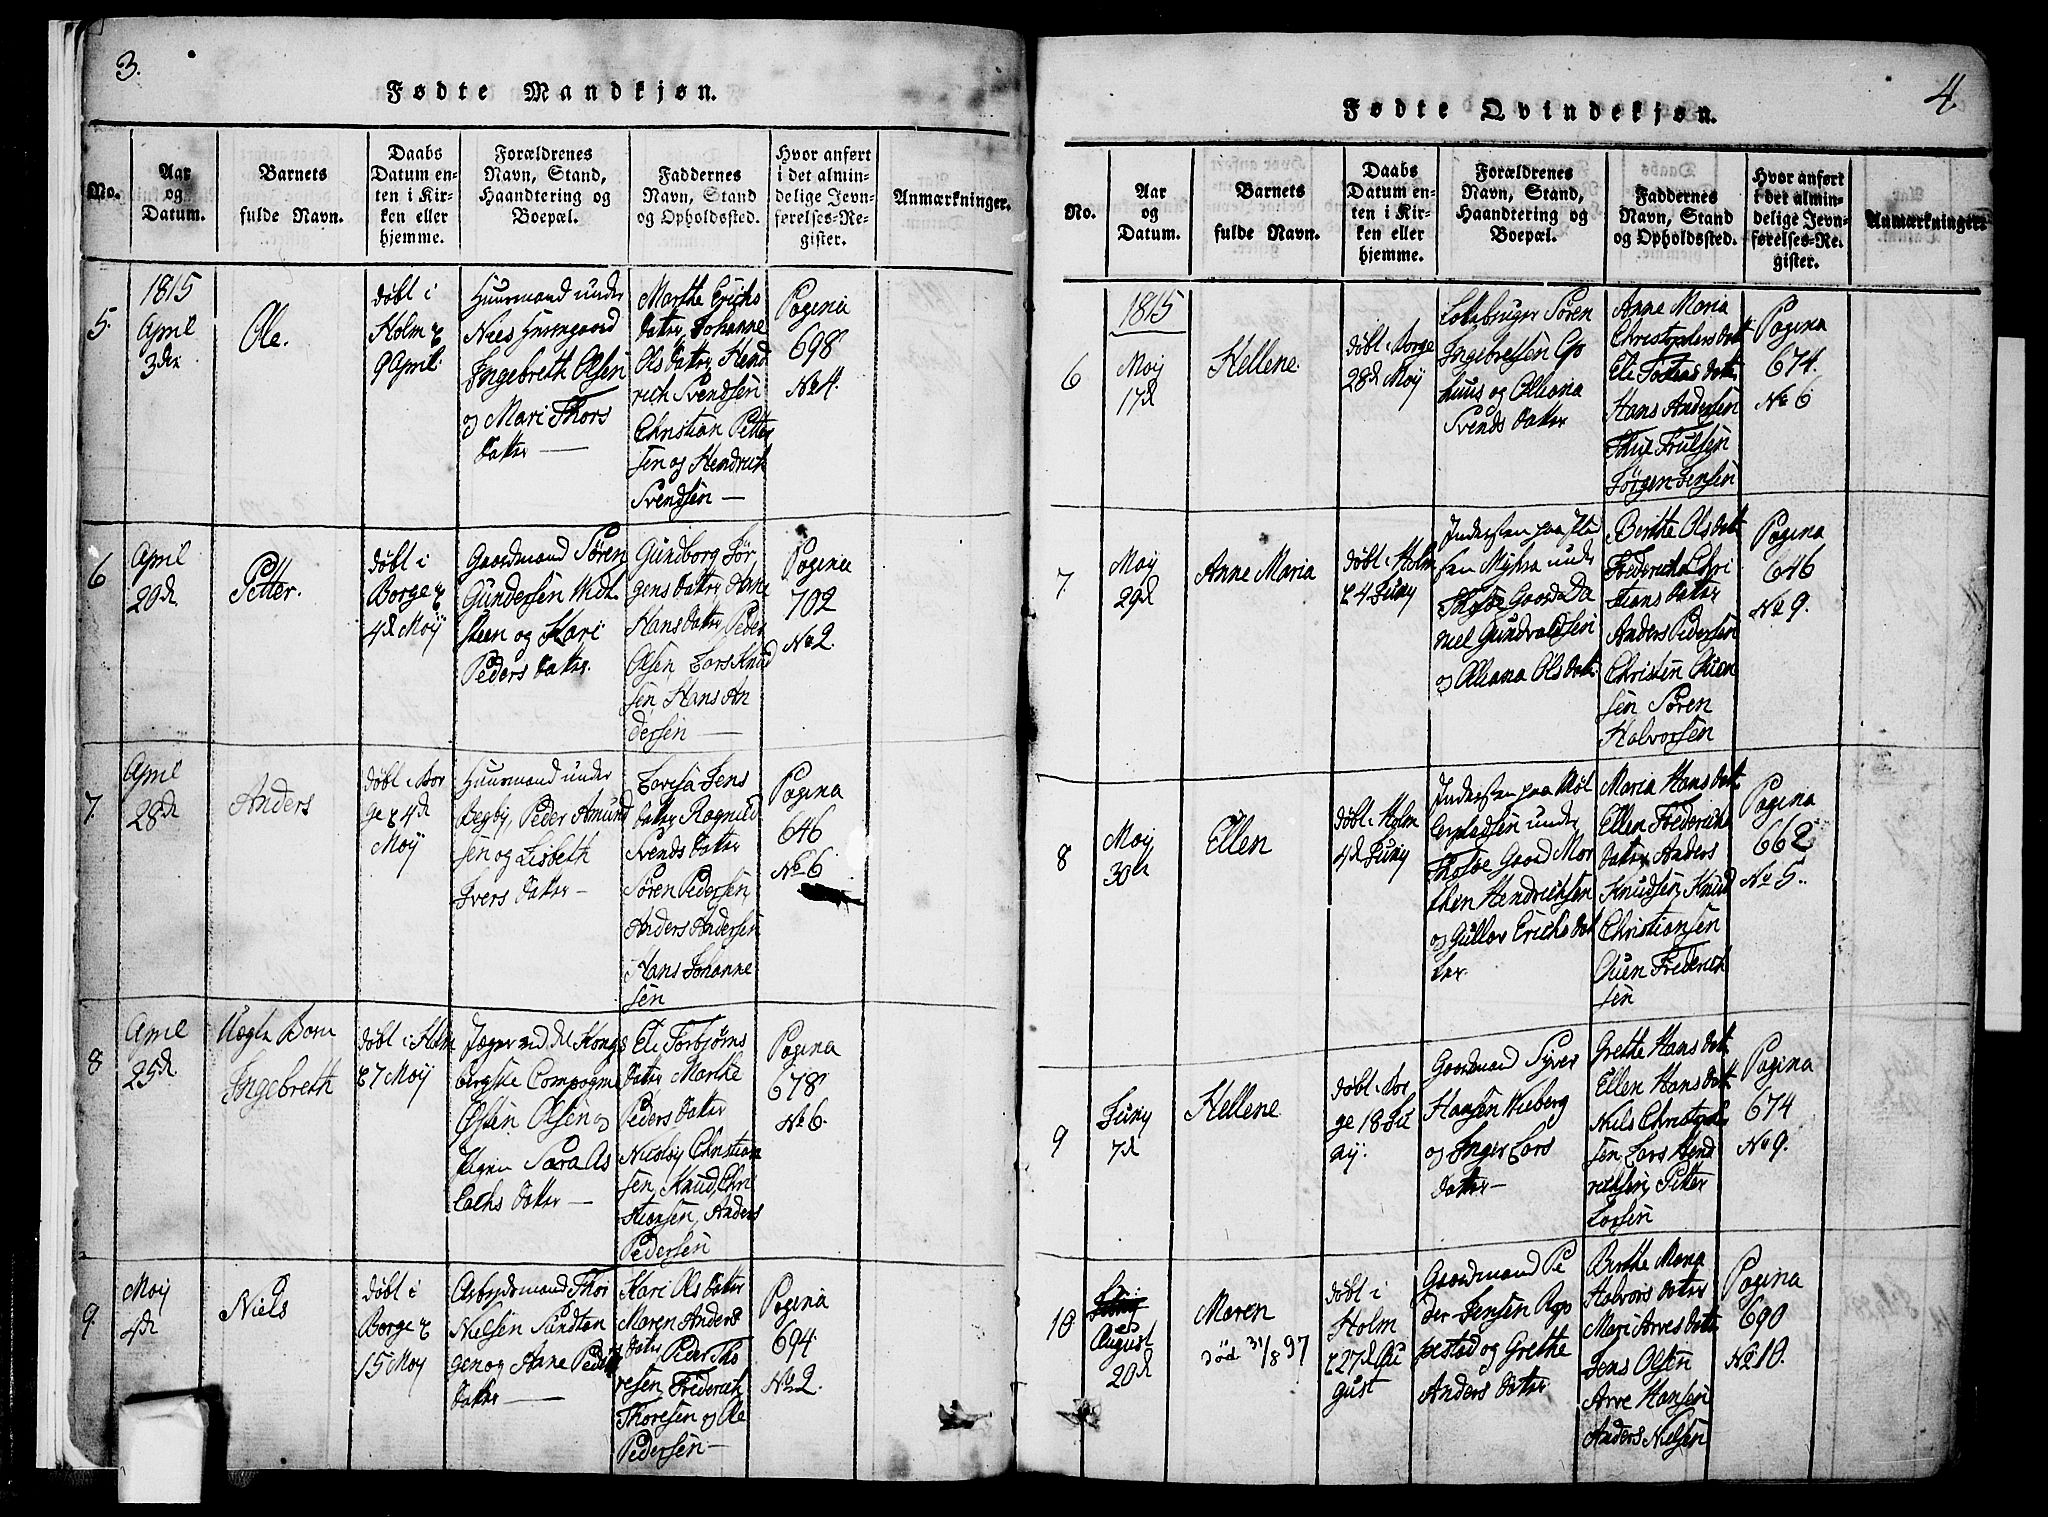 3.
Fødte Mandkjøn.
No.
Aar
og
Datum.
Barnets
fulde Navn.
Daabs
Datum en-
ten i Kir-
ken eller
hjemme.
Forældrenes
Navn, Stand,
Haandtering og
Boepæl.
Faddernes
Navn, Stand
og Opholdssted.
Hvor anført
i det almin-
delige Jevn-
førelses-Re-
gister.
Anmærkninger.
5.
1815
April
3de
Ole.
døbt i
Holm d
9 April.
Huusmand under
Nies
Ingebreth Olsen
og Mari Thors
datter —
Marthe Erichs
datter, Johanne
Ols datter, Hend
rich Svendsen
Christian Petter
sen og Hendrich
Svendsen —
Pagina
698
No 4.
6
April
20de
Petter.
døbt i
Borge d
4de Moy
Gaardmand Sören
Gundersen Wid
steen og Kari
Peders datter.
Gundborg Jör
gens datter, Anne
Hans datter, Peder
Olsen, Lars Knud
sen Hans An
dersen —
Pagina
702
No 2.
7.
April
28de
Anders
døbt i Bor
ge d 4de
Moy
Huusmand under
Begby, Peder Amund
sen og Lisbeth
Ivers datter —
Lovisa Jens
datter Ragnild
Svends datter
Sören Pedersen,
Anders Andersen
Hans Johanne
sen
Pagina
646
No 6
8
April
25de
Uægte Barn
Ingebreth
døbt i Holm
d 7 Moy
Jæger ved det Kongs
bergske Compagnie
Östen Olsen og
Pigen Sara As
lachs datter —
Eli Torbjørns
datter Marthe
Peders datter
Nicolay Christian
sen, Knud Chri
stiansen, Anders
Pedersen
Pagina
678
No 6.
9.
Moy
4de
Niels
døbt i
Borge d
15 Moy
Arbeydsmand Thor
Nielsen Sundtan
gen og Anne Peders
datter —
Kari Ols datter
Maren Anders
datter, Peder Tho
resen, Frederich
Thoresen og Ole
Pedersen —
Pagina
694.
No 2.
4.
Fødte Qvindekjøn.
No.
Aar
og
Datum.
Barnets
fulde Navn.
Daabs
Datum en-
ten i Kir-
ken eller
hjemme.
Forældrenes
Navn, Stand,
Haandtering og
Boepæl.
Faddernes
Navn, Stand
og Opholdssted.
Hvor anført
i det almin-
delige Jevn-
førelses-Re-
gister.
Anmærkninger.
6
1815
Moy
17de
Hellene.
døbt i Borge
28de Moy
Sören
Ingebretsen Op
huus og Olleana
Svends datter
Anne Maria
Christophers datt.
Eli datt.
Hans Andersen
Jörgen Jensen
Pagina
674.
No 6
7.
Moy
29de
Anne Maria
døbt i Holm
d 4 Juny
Indersten paa Plad
sen Myhra under
Thosöe Gaard Da
niel Gundvaldsen
og Olleana Ols datt.
Berthe Ols datt
Frederica Chri
stians datter
Anders Pedersen
Christen Chien
sen Sören
Halvorsen
Pagina
646
No 9.
8
Moy
30de
Ellen
døbt i Holm
4de Juny
Indersten paa Möl
lerpladsen under
Thosöe Gaard Mor
then Hendrichsen
og Gullov Erichs dat
ter.
Maria Hans datt.
Ellen Frederichs
datter, Anders
Knudsen, Knud
Christiansen
Frederich
sen
Pagina
662
No 5.
9
Juny
7de
Hellene
døbt i Bor
ge 18 Ju
ny.
Gaardmand Syver
Hansen Wieberg
og Inger Lars
datter —
Grethe Hans datt.
Ellen Hans datt.
Niels Christoph
sen Lars Hend
richsen, Petter
Larsen
Pagina
674
No 9.
10
August
20de
Maren
død 31/8 97
døbt i
Holm
d 27de Au
gust
Gaardmand Pe
der Jensen Rop
pestad og Grethe
Anders datter
Birthe Maria
Halvors datter
Mari Arves datt.
Jens Olsen
Arve Hansen
Anders Nielsen
Pagina
690
No 10.